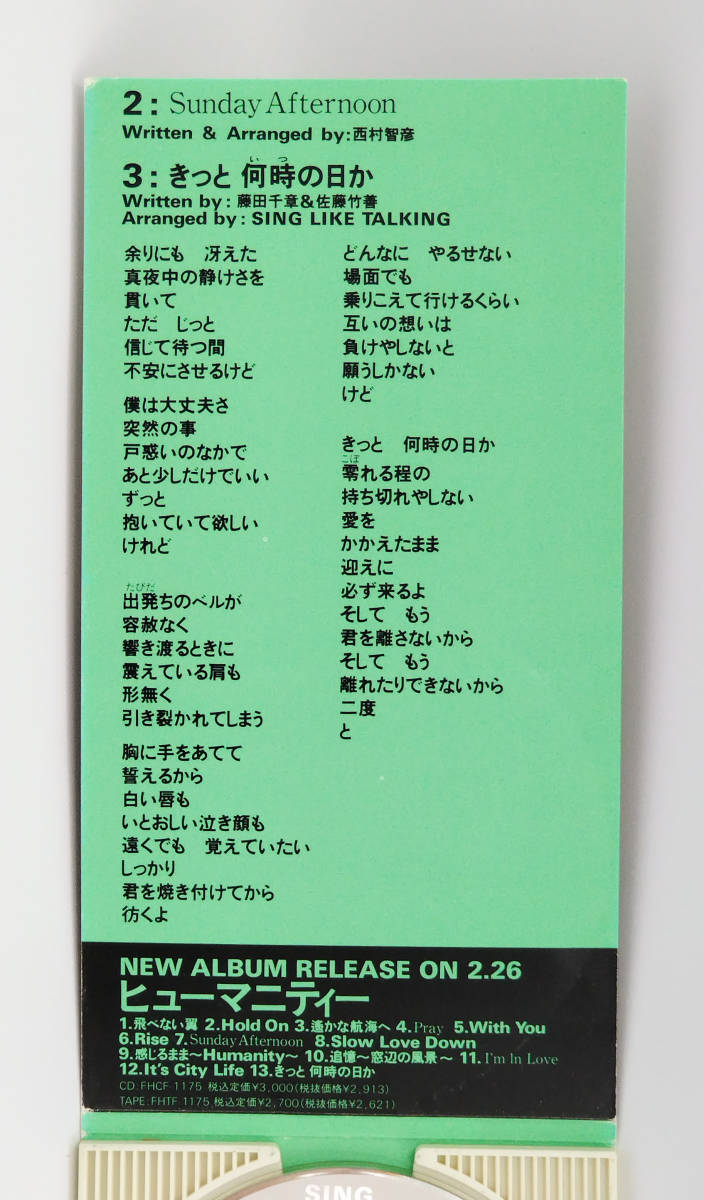 2: Sunday Afternoon
Written & Arranged by:西村智彦
いつ
3: きっと 何時の日か
Written by: 藤田千章&佐藤竹善
Arranged by: SING LIKE TALKING
余りにも 冴えた
真夜中の静けさを
貫いて
ただ じっと
信じて待つ間
不安にさせるけど
僕は大丈夫さ
突然の事
戸惑いのなかで
あと少しだけでいい
ずっと
抱いていて欲しい
けれど
たびだ
出発ちのベルが
容赦なく
響き渡るときに
震えている肩も
形無く
引き裂かれてしまう
胸に手をあてて
誓えるから
白い唇も
いとおしい泣き顔も
遠くでも 覚えていたい
しっかり
君を焼き付けてから
彷くよ
どんなに やるせない
場面でも
乗りこえて行けるくらい
互いの想いは
負けやしないと
願うしかない
けど
きっと 何時の日か
こぼ
零れる程の
持ち切れやしない
愛を
かかえたまま
迎えに
必ず来るよ
そして もう
君を離さないから
そして もう
離れたりできないから
二度
と
NEW ALBUM RELEASE ON 2.26
ヒューマニティー
1.飛べない翼 2.Hold On 3.遙かな航海へ 4.Pray 5.With You
6.Rise 7.Sunday Afternoon 8.Slow Love Down
9.感じるまま〜Humanity〜 10.追憶〜窓辺の風景〜 11.I'm In Love
12.It's City Life 13.きっと 何時の日か
CD:FHCF-1175 税込定価¥3,000(税抜価格¥2,913)
TAPE:FHTF 1175 税込定価¥2,700(税抜価格¥2,621)
SING